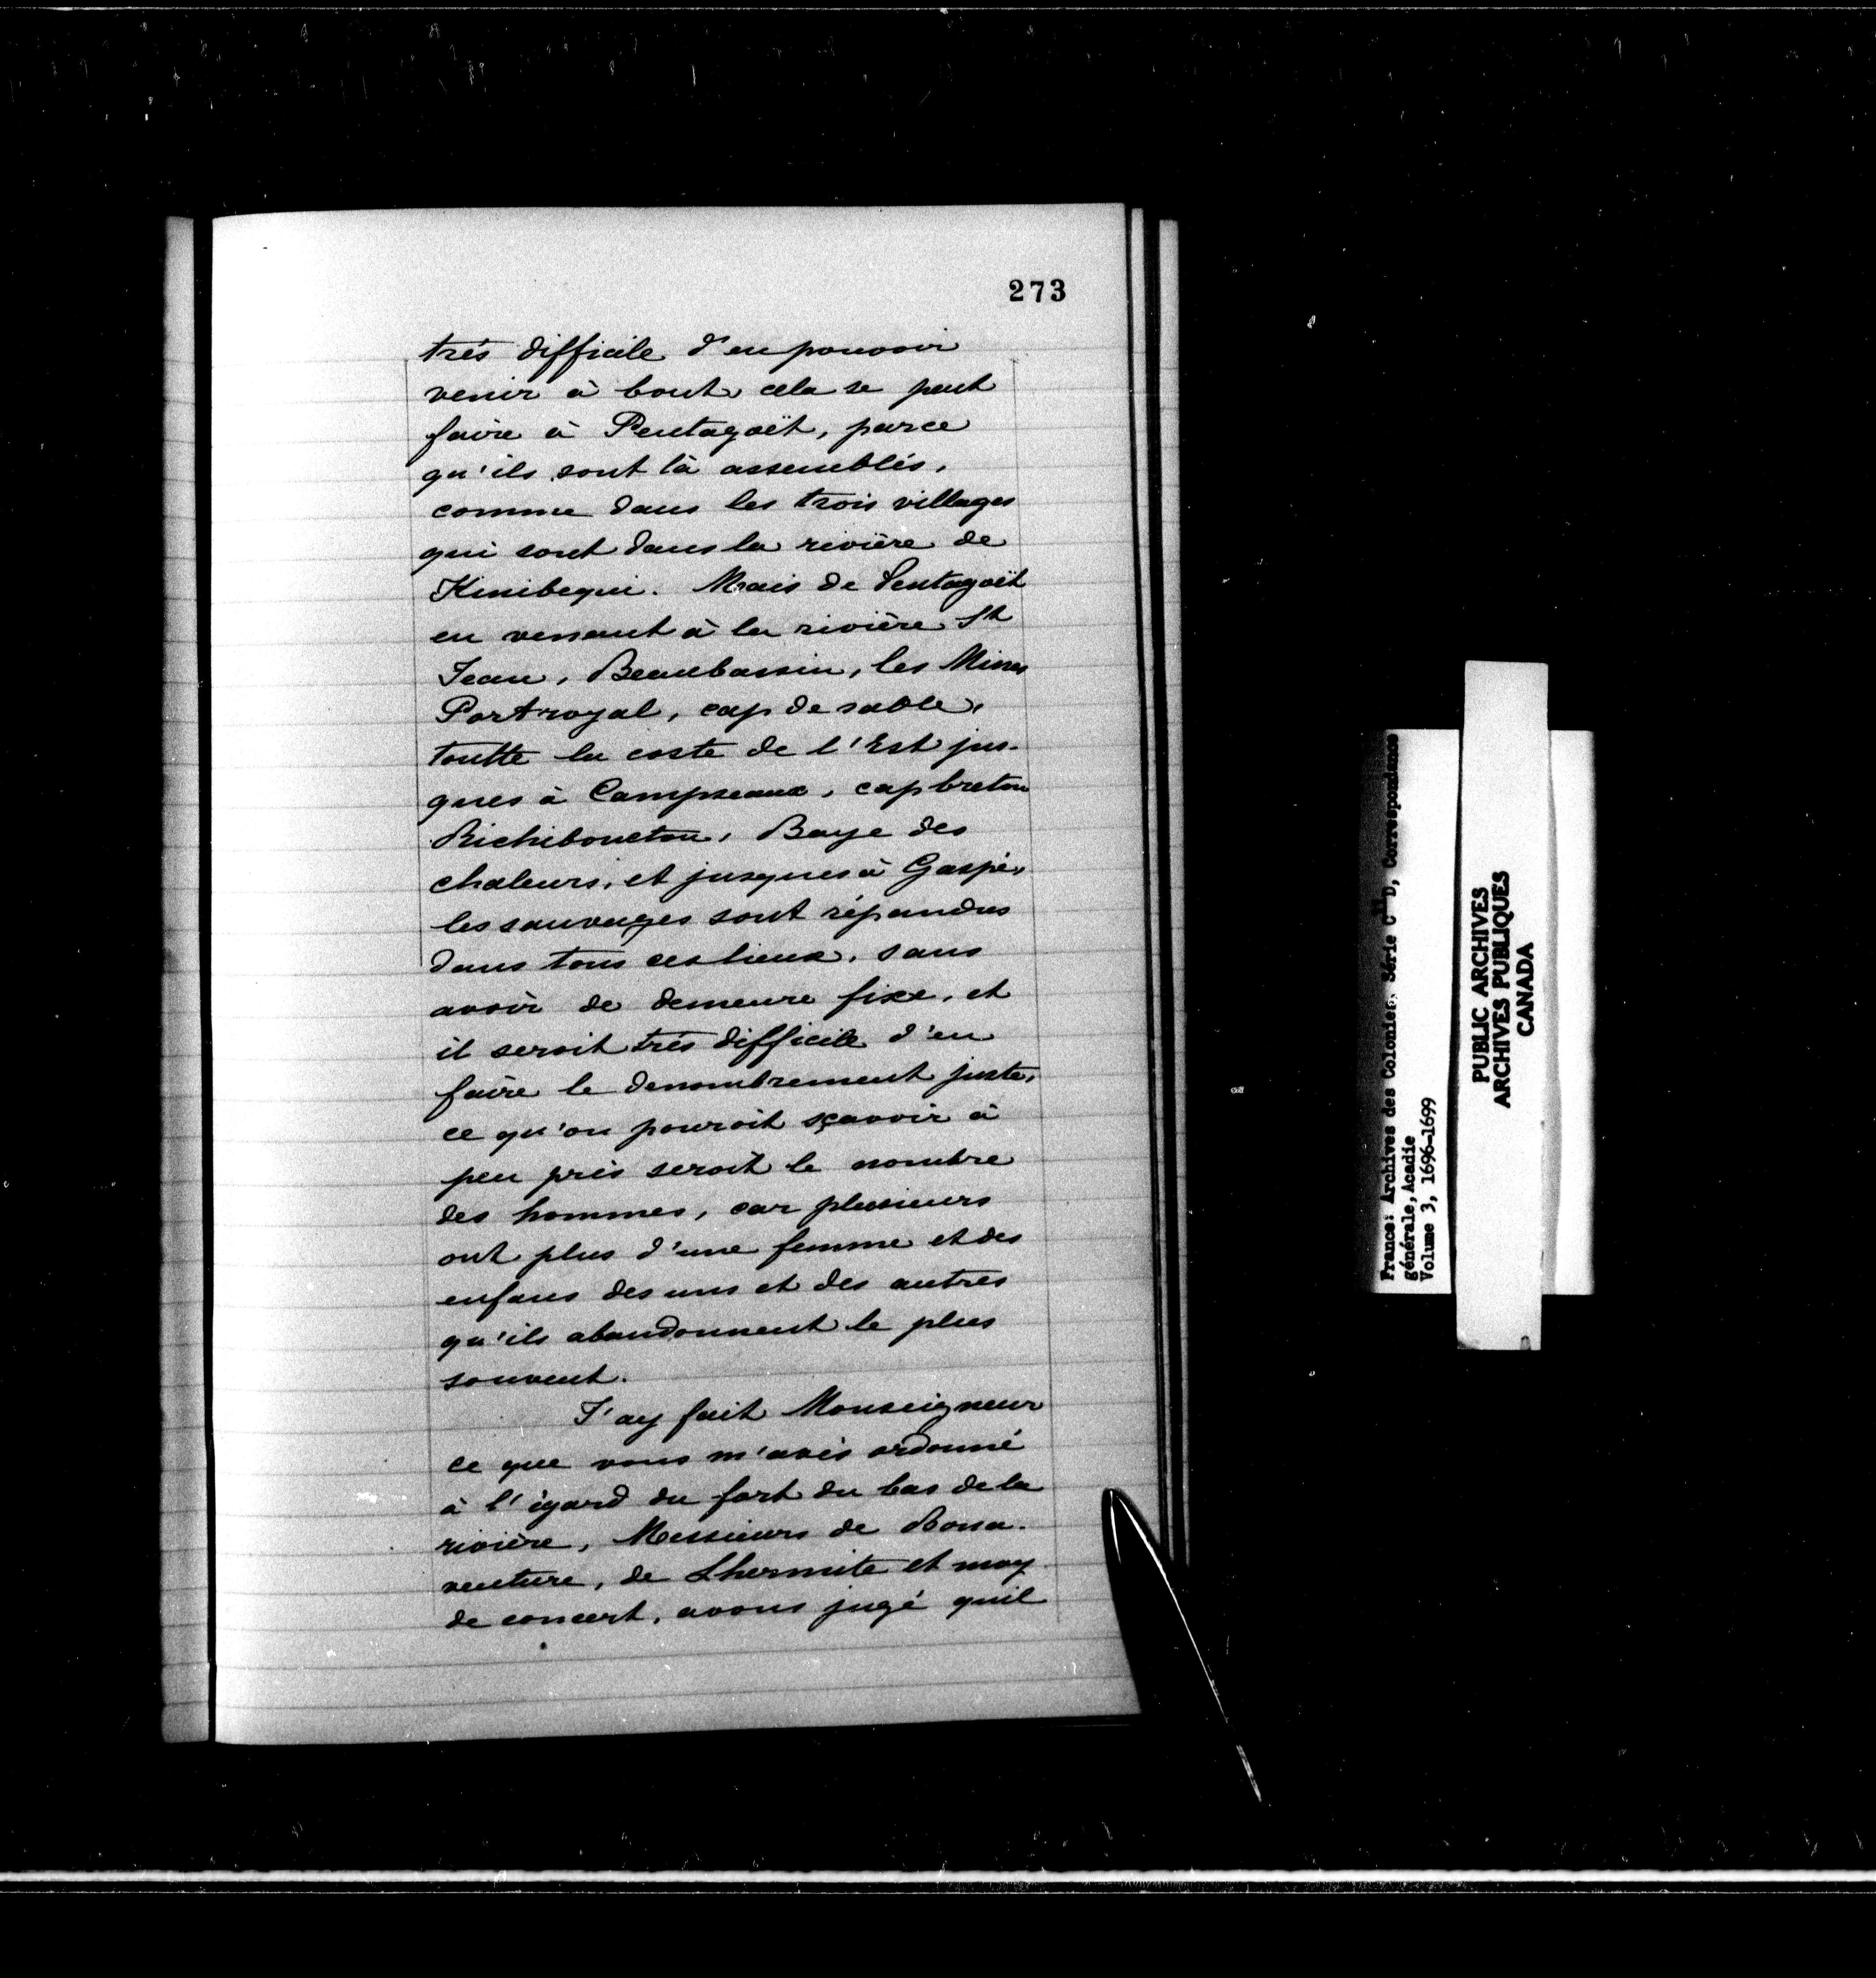 273
trés difficile d'en pouvoir
venir à bout, cela se peut
faire à Pentagoët, parce
qu'ils sont là assemblés,
comme dans les trois villages
qui sont dans la rivière de
Kinibequi. Mais de Pentagoët
en venant à la rivière St
Jean, Beaubassin, les Mines
Portroyal, cap de sable,
toutte la coste de l'Est jus-
ques à Campseaux, cap breton
Richibouctou, Baye des
chaleurs, et jusques à Gaspé,
les sauvages sont répandus
dans tous ces lieux, sans
avoir de demeure fixe, et
il seroit trés difficile d'en
faire le denombrement juste,
ce qu'on pouroit sçavoir à
peu près seroit le nombre
des hommes, car plusieurs
ont plus d'une femme et des
enfans des uns et des autres
qu'ils abandonnent le plus
souvent.
J'ay fait Monseigneur
ce que vous m'avés ordonné
à l'égard du fort du bas de la
rivière, Messieurs de Bona-
venture, de Lhermite et moy
de concert, avons jugé quil
France: Archives des Colonies, Série C11D, Correspondance
générale, Acadie
Volume 3, 1696-1699
PUBLIC ARCHIVES
ARCHIVES PUBLIQUES
CANADA